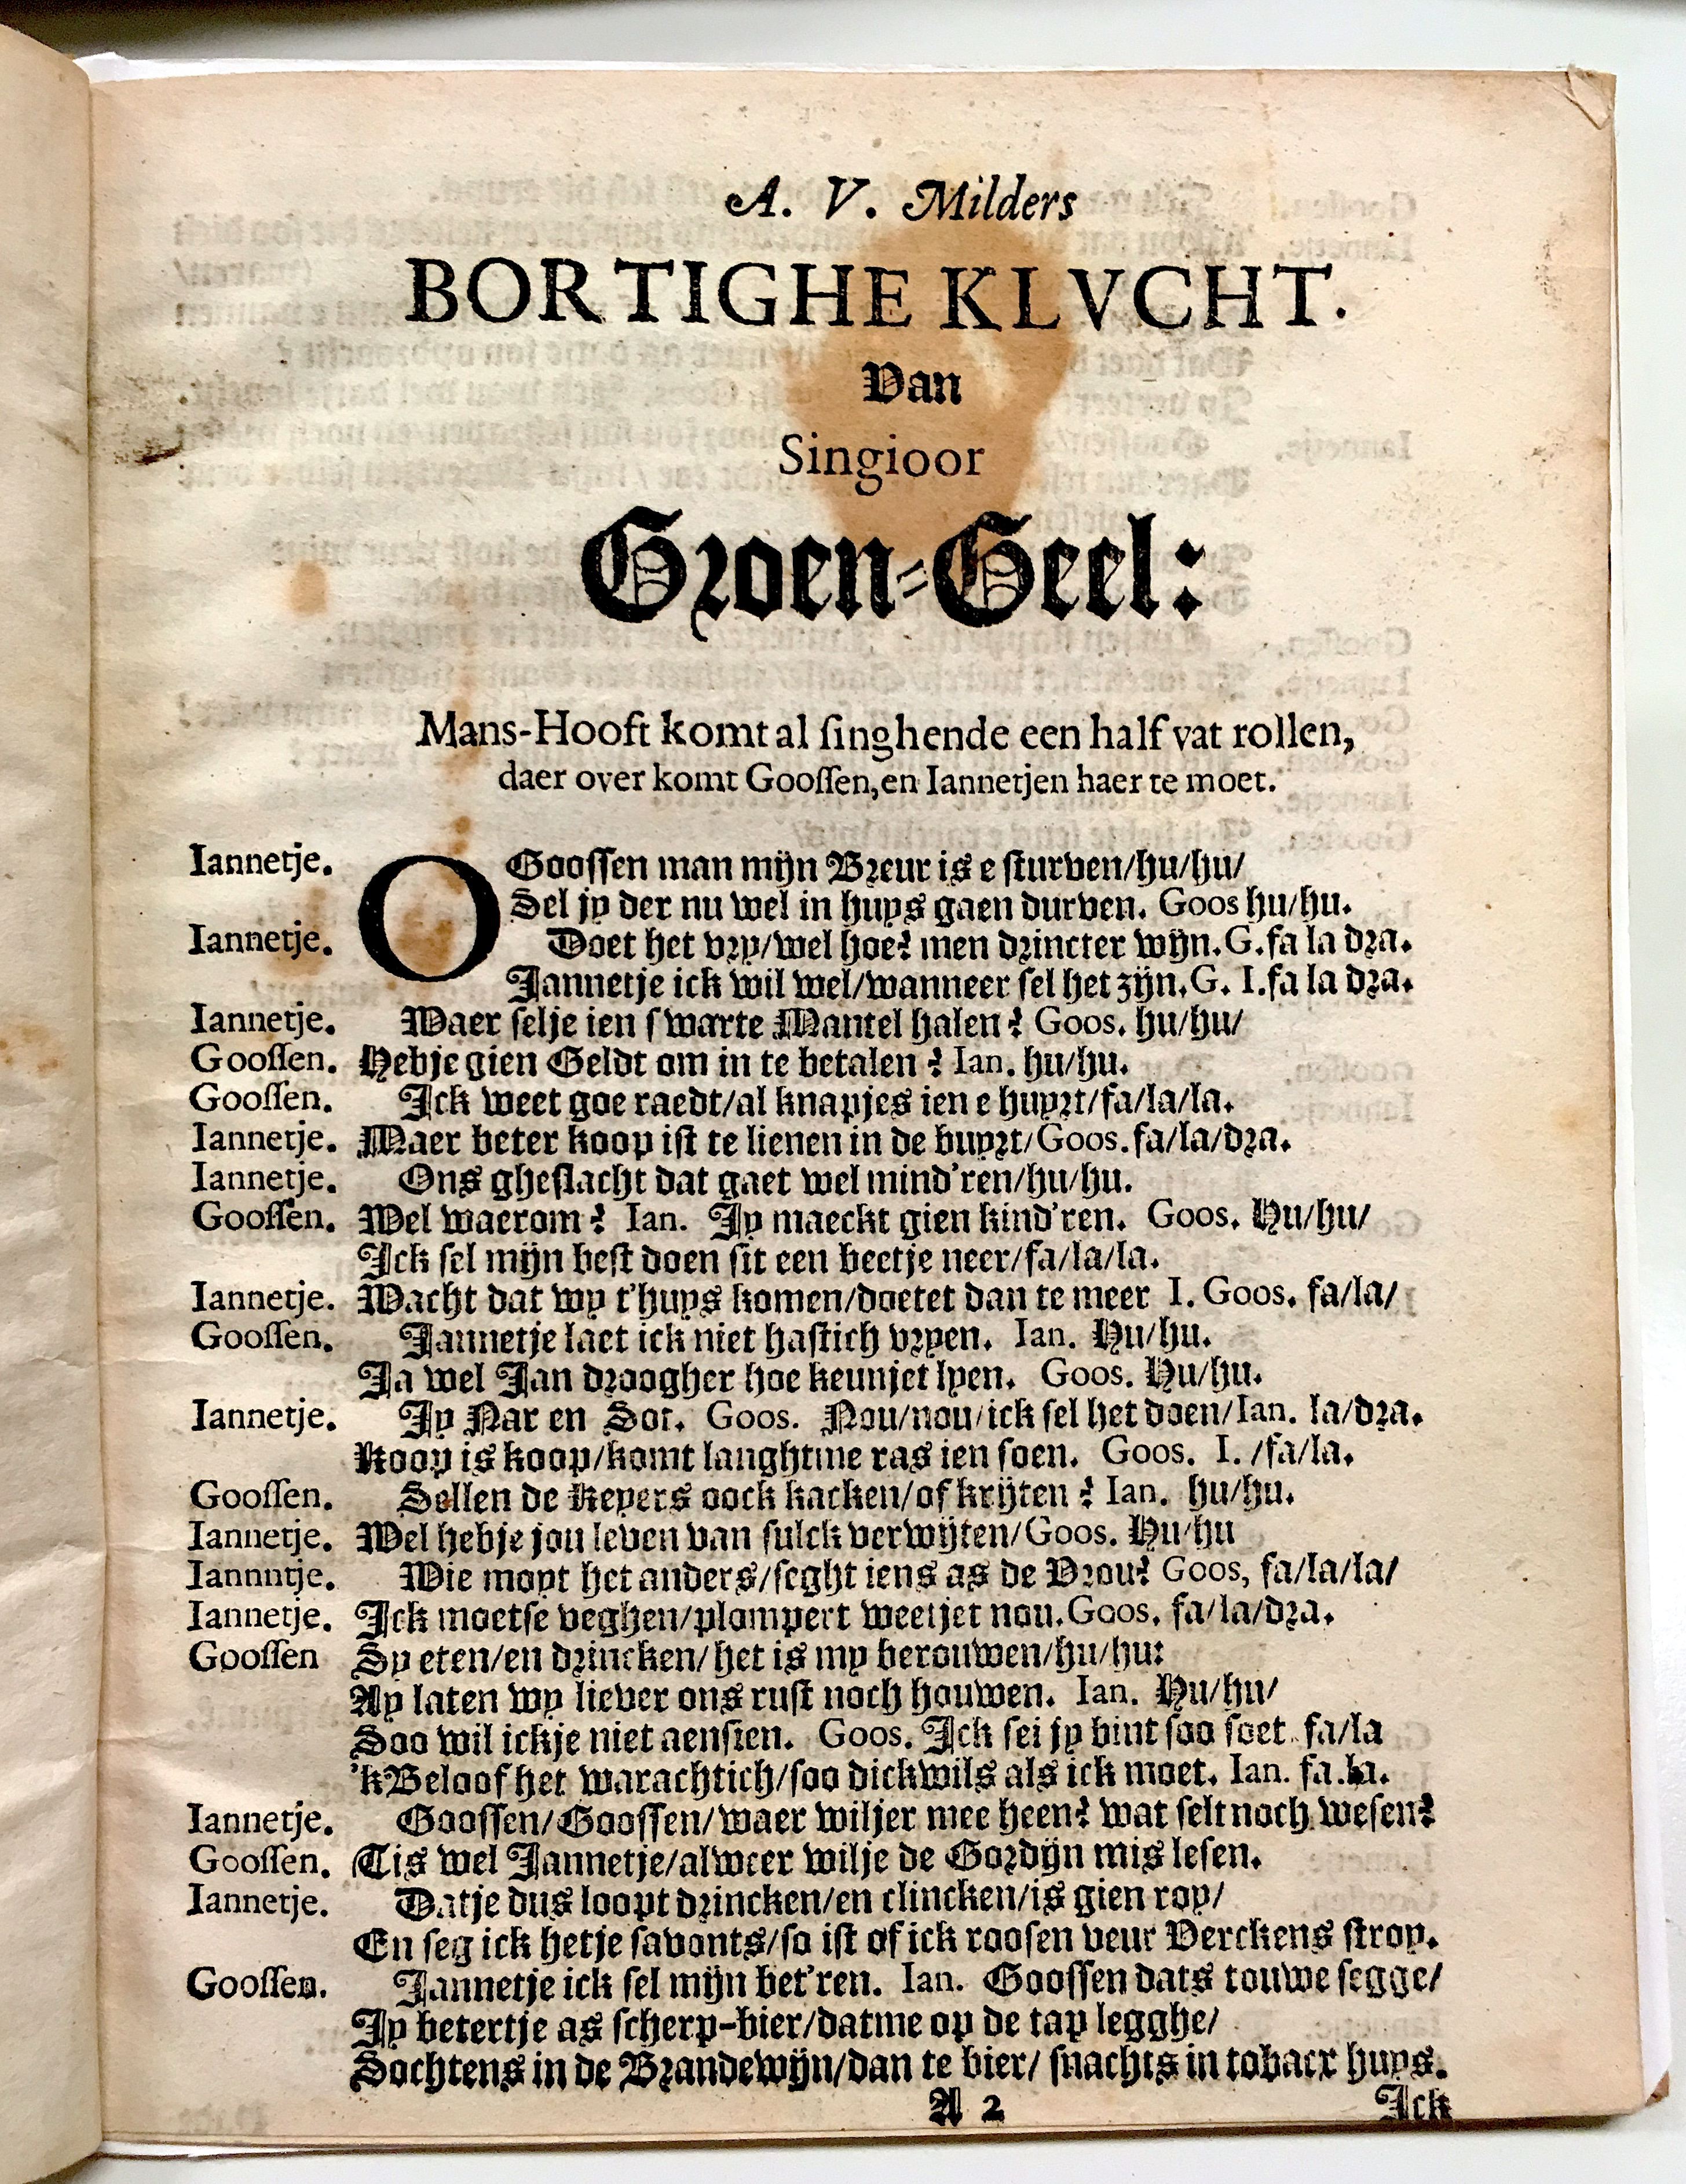 A. V. Milders
BORTIGHE KLVCHT.
Van
Singioor
Groen-Geel:
Mans-Hooft komt al ſinghende een half vat rollen,
daer over komt Gooſſen, en Iannetjen haer te moet.
Iannetje. O Gooſſen man mijn Breur is e ſturven/hu/hu/
Sel jy der nu wel in huys gaen durven. Goos hu/hu.
Iannetje. Doet het vry/wel hoe? men drincter wijn. G. fa la dra.
Jannetje ick wil wel/wanneer ſel het zijn. G. I. fa la dra.
Iannetje. Waer ſelje ien ſwarte Mantel halen? Goos. hu/hu/
Gooſſen. Hebje gien Geldt om in te betalen? Ian. hu/hu.
Gooſſen. Ick weet goe raedt/al knapjes ien e huyrt/fa/la/la.
Iannetje. Maer beter koop iſt te lienen in de buyrt/Goos. fa/la/dra.
Iannetje. Ons gheſlacht dat gaet wel mind'ren/hu/hu.
Gooſſen. Wel waerom? Ian. Jy maeckt gien kind'ren. Goos. Hu/hu/
Ick ſel mijn beſt doen ſit een beetje neer/fa/la/la.
Iannetje. Wacht dat wy t'huys komen/doetet dan te meer I. Goos. fa/la/
Gooſſen. Jannetje laet ick niet haſtich vryen. Ian. Hu/hu.
Ja wel Jan droogher hoe keunjet lyen. Goos. Hu/hu.
Iannetje. Jy Nar en Sot. Goos. Nou/nou/ick ſel het doen/Ian. la/dra.
Koop is koop/komt langhtme ras ien ſoen. Goos. I. /fa/la.
Gooſſen. Sellen de Keyers oock kacken/of krijten? Ian. hu/hu.
Iannetje. Wel hebje jou leven van ſulck verwijten/Goos. Hu/hu
Iannntje. Wie moyt het anders/ſeght iens as de Vrou? Goos, fa/la/la/
Iannetje. Ick moetſe veghen/plompert weetjet nou. Goos. fa/la/dra.
Gooſſen Sy eten/en drincken/het is my berouwen/hu/hu:
Ay laten wy liever ons ruſt noch houwen. Ian. Hu/hu/
Soo wil ickje niet aenſien. Goos. Ick ſei jy bint ſoo ſoet. fa/la
'k Beloof het warachtich/ſoo dickwils als ick moet. Ian. fa.la.
Iannetje. Gooſſen/Gooſſen/waer wiljer mee heen? wat ſelt noch weſen?
Gooſſen. Tis wel Jannetje/alweer wilje de Gordijn mis leſen.
Iannetje. Datje dus loopt drincken/en clincken/is gien roy/
En ſeg ick hetje ſavonts/ſo iſt of ick rooſen veur Verckens ſtroy.
Gooſſen. Jannetje ick ſel mijn bet'ren. Ian. Gooſſen dats touwe ſegge/
Jy betertje as ſcherp-bier/datme op de tap legghe/
Sochtens in de Brandewijn/dan te bier/ ſnachts in toback huys.
A 2 Ick